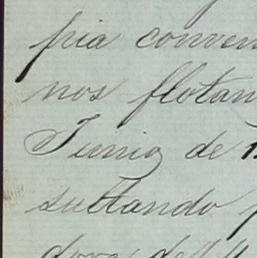 pia conven
nos flotan
Junio de 1
sultando